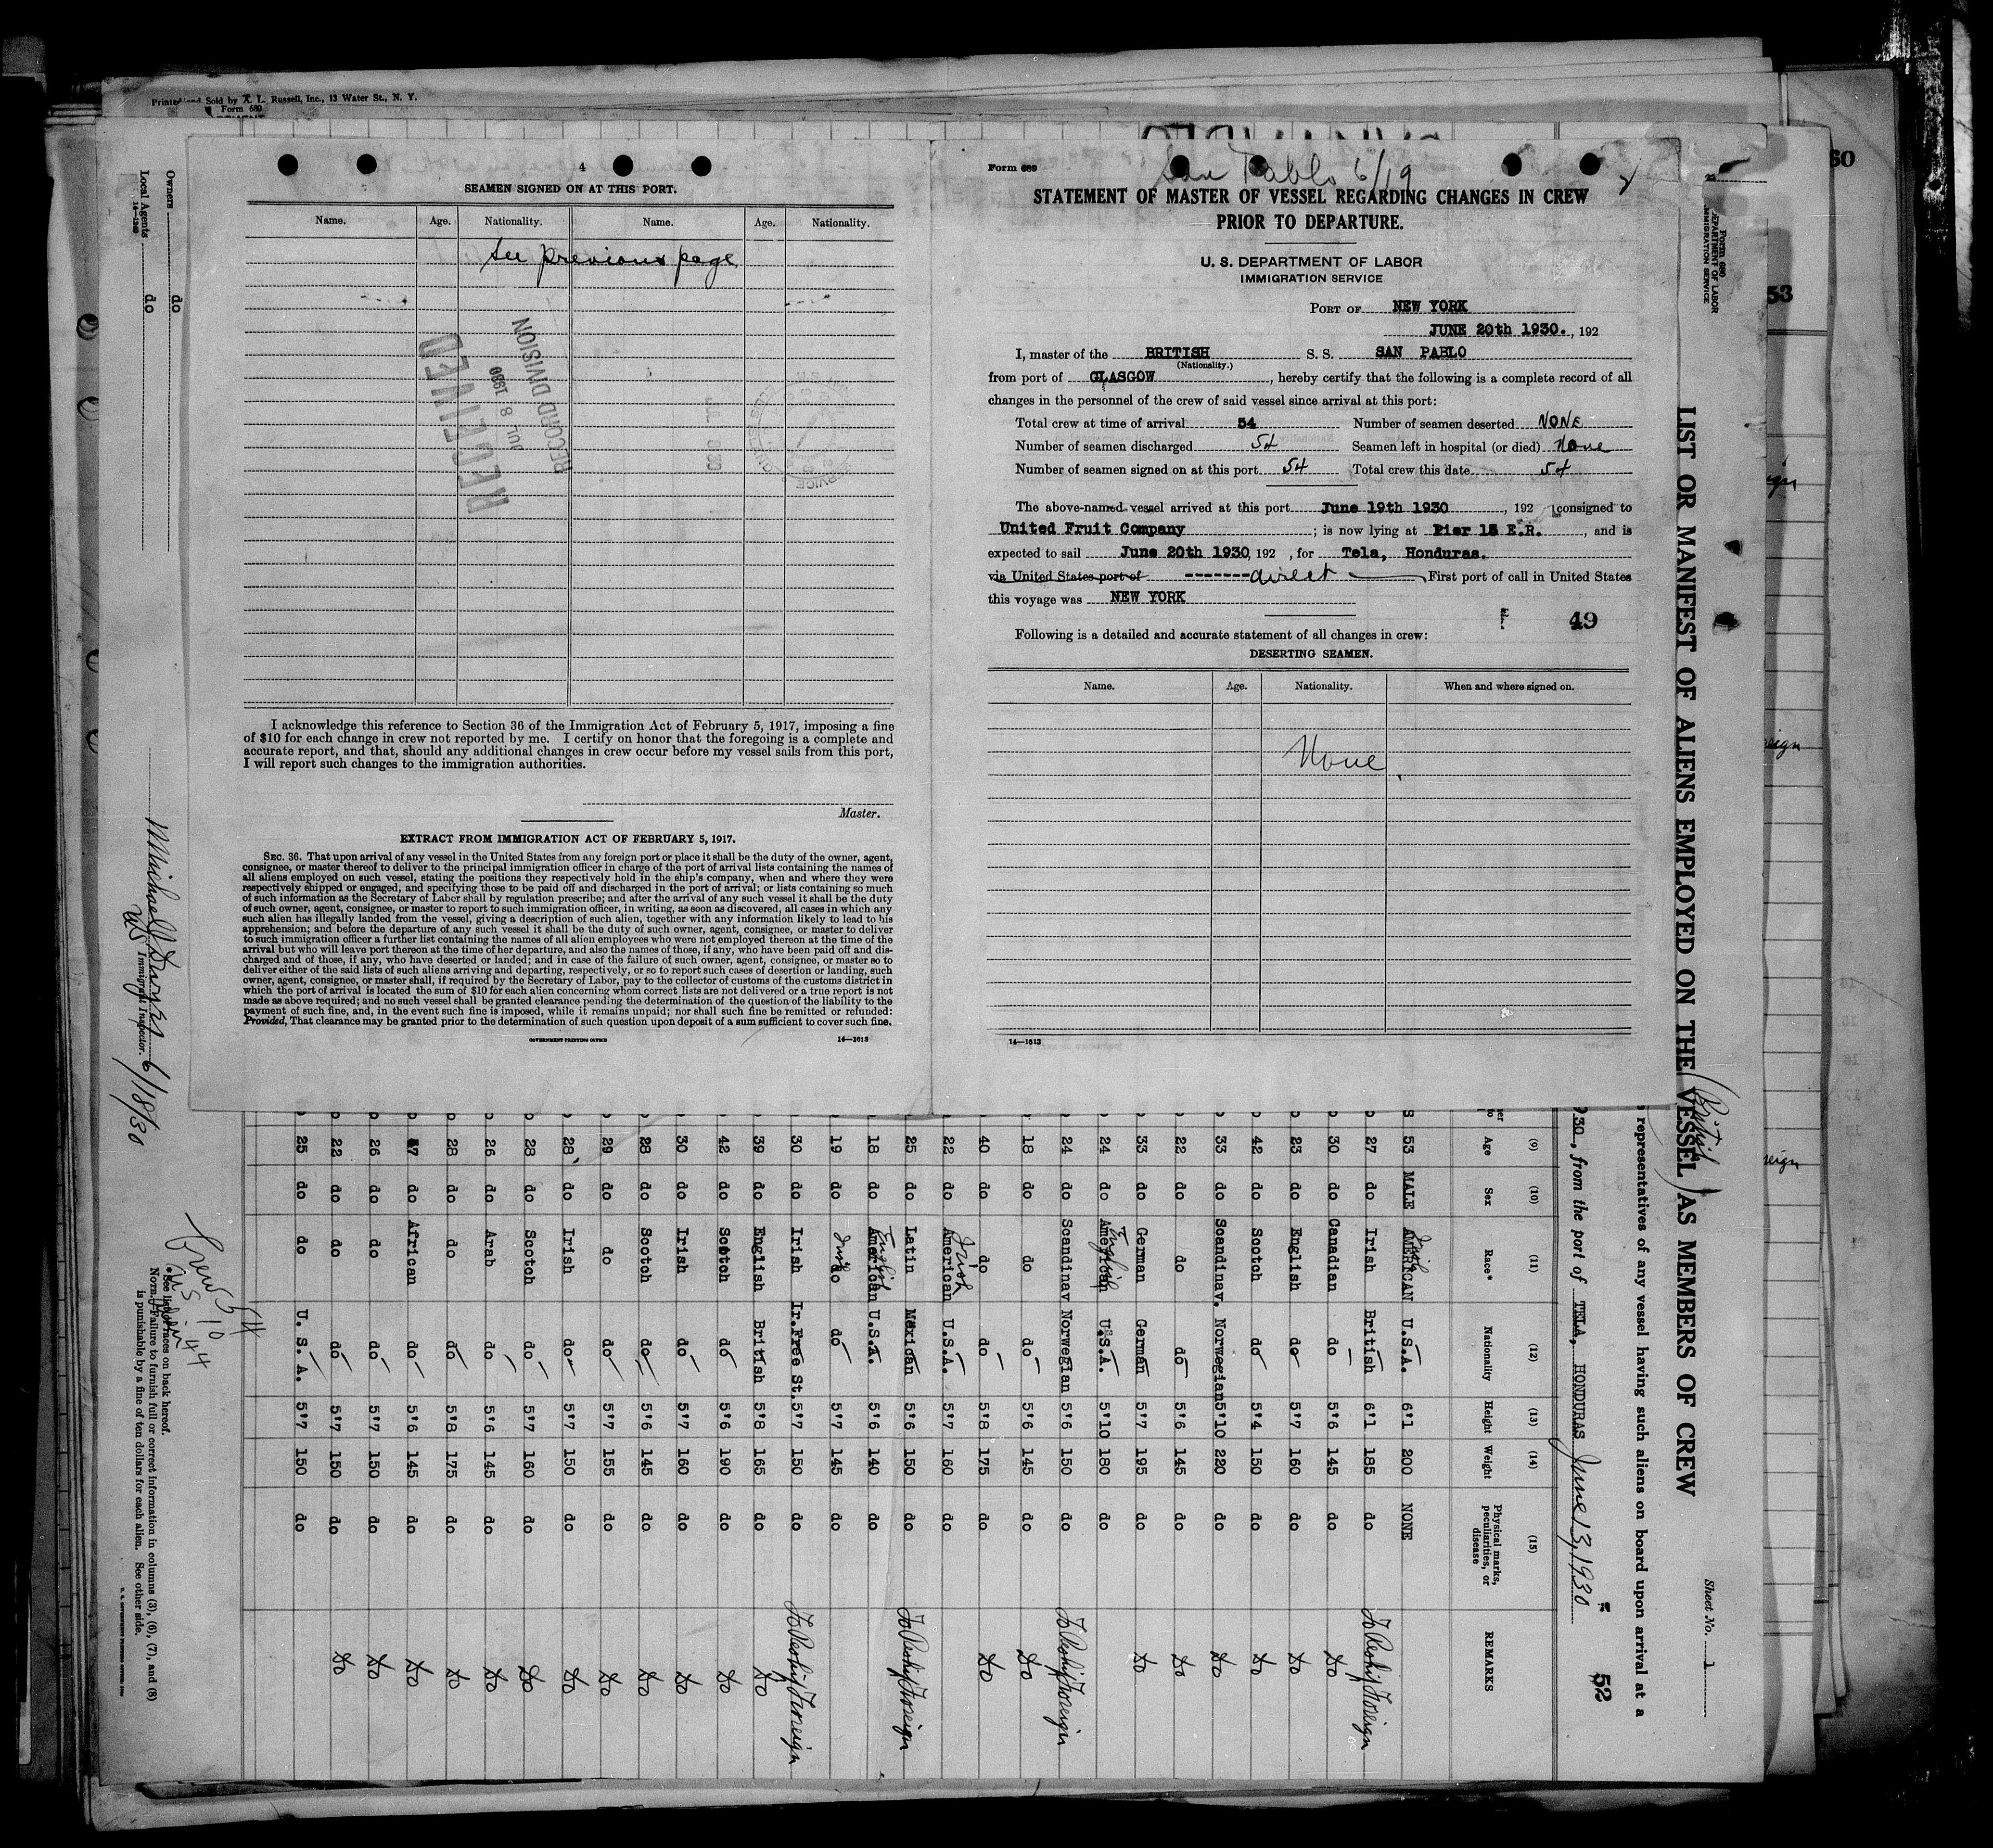 Printed and Sold by A. L. Russell, Inc., 13 Water St., N. Y.
Form 680
4
SEAMEN SIGNED ON AT THIS PORT.
Name. Age. Nationality. Name. Age. Nationality.
See previous page
RECEIVED
JUL 8 1930
RECORD DIVISION
I acknowledge this reference to Section 36 of the Immigration Act of February 5, 1917, imposing a fine
of $10 for each change in crew not reported by me. I certify on honor that the foregoing is a complete and
accurate report, and that, should any additional changes in crew occur before my vessel sails from this port,
I will report such changes to the immigration authorities.
Master.
EXTRACT FROM IMMIGRATION ACT OF FEBRUARY 5, 1917.
SEC. 36. That upon arrival of any vessel in the United States from any foreign port or place it shall be the duty of the owner, agent,
consignee, or master thereof to deliver to the principal immigration officer in charge of the port of arrival lists containing the names of
all aliens employed on such vessel, stating the positions they respectively hold in the ship's company, when and where they were
respectively shipped or engaged, and specifying those to be paid off and discharged in the port of arrival; or lists containing so much
of such information as the Secretary of Labor shall by regulation prescribe; and after the arrival of any such vessel it shall be the duty
of such owner, agent, consignee, or master to report to such immigration officer, in writing, as soon as discovered, all cases in which any
such alien has illegally landed from the vessel, giving a description of such alien, together with any information likely to lead to his
apprehension; and before the departure of any such vessel it shall be the duty of such owner, agent, consignee, or master to deliver
to such immigration officer a further list containing the names of all alien employees who were not employed thereon at the time of the
arrival but who will leave port thereon at the time of her departure, and also the names of those, if any, who have been paid off and dis-
charged and of those, if any, who have deserted or landed; and in case of the failure of such owner, agent, consignee, or master so to
deliver either of the said lists of such aliens arriving and departing, respectively, or so to report such cases of desertion or landing, such
owner, agent, consignee, or master shall, if required by the Secretary of Labor, pay to the collector of customs of the customs district in
which the port of arrival is located the sum of $10 for each alien concerning whom correct lists are not delivered or a true report is not
made as above required; and no such vessel shall be granted clearance pending the determination of the question of the liability to the
payment of such fine, and, in the event such fine is imposed, while it remains unpaid; nor shall such fine be remitted or refunded:
Provided, That clearance may be granted prior to the determination of such question upon deposit of a sum sufficient to cover such fine.
GOVERNMENT PRINTING OFFICE 14—1613
Form 689
San Pablo 6/19
STATEMENT OF MASTER OF VESSEL REGARDING CHANGES IN CREW
PRIOR TO DEPARTURE.
U. S. DEPARTMENT OF LABOR
IMMIGRATION SERVICE
PORT OF NEW YORK
JUNE 20th 1930. , 192
I, master of the BRITISH S. S. SAN PABLO
(Nationality.)
from port of GLASGOW , hereby certify that the following is a complete record of all
changes in the personnel of the crew of said vessel since arrival at this port:
Total crew at time of arrival 54 Number of seamen deserted NONE
Number of seamen discharged 54 Seamen left in hospital (or died) None
Number of seamen signed on at this port 54 Total crew this date 54
The above-named vessel arrived at this port June 19th 1930 , 192 , consigned to
United Fruit Company ; is now lying at Pier 15 E.R. , and is
expected to sail June 20th 1930, 192 , for Tela, Honduras.
via United States port of ------- direct First port of call in United States
this voyage was NEW YORK
49
Following is a detailed and accurate statement of all changes in crew:
DESERTING SEAMEN.
Name. Age. Nationality. When and where signed on.
None
14—1613
Form 680
DEPARTMENT OF LABOR
IMMIGRATION SERVICE
LIST OR MANIFEST OF ALIENS EMPLOYED ON THE VESSEL AS MEMBERS OF CREW
(British)
Sheet No. 1
representatives of any vessel having such aliens on board upon arrival at a
30, from the port of TELA, HONDURAS June 13, 1930
52
(9) (10) (11) (12) (13) (14) (15)
Age Sex Race* Nationality Height Weight Physical marks, peculiarities, or disease REMARKS
53 MALE AMERICAN Irish U.S.A. 6'1 200 NONE
27 do Irish British 6'1 185 do To Reship Foreign
30 do Canadian do 5'6 145 do Do
23 do English do 5'7 160 do Do
42 do Scotch do 5'4 150 do Do
33 do Scandinav. Norwegian 5'10 220 do Do
22 do do do 5'6 145 do Do
33 do German German 5'7 195 do Do
24 do American English U.S.A. 5'10 180 do
24 do Scandinav Norwegian 5'6 150 do To Reship Foreign
18 do do do 5'6 145 do Do
40 do do do 5'8 175 do Do
22 do American Irish U.S.A. 5'7 160 do
25 do Latin Mexican 5'6 150 do To Reship Foreign
18 do American English U.S.A. 5'6 140 do
19 do do Irish do 5'7 145 do
30 do Irish Ir.Free St. 5'7 150 do To Reship Foreign
39 do English British 5'8 165 do Do
42 do Scotch do 5'6 190 do Do
30 do Irish do 5'7 160 do Do
28 do Scotch do 5'6 145 do Do
29 do do do 5'7 155 do Do
28 do Irish do 5'7 150 do Do
28 do Scotch do 5'7 160 do Do
26 do Arab do 5'6 145 do Do
28 do do do 5'8 175 do Do
do African do 5'6 145 do Do
26 do do do 5'7 150 do Do
22 do do do 5'7 150 do Do
25 do do U. S. A. 5'7 150 do
Owners do
Local Agents do
14—1240
US Immigrant Inspector. 6/18/30
Crew 54
US 10
Alien 44
*See list of races on back hereof.
NOTE.—Failure to furnish full or correct information in columns (3), (6), (7), and (8)
is punishable by a fine of ten dollars for each alien. See other side.
60
53